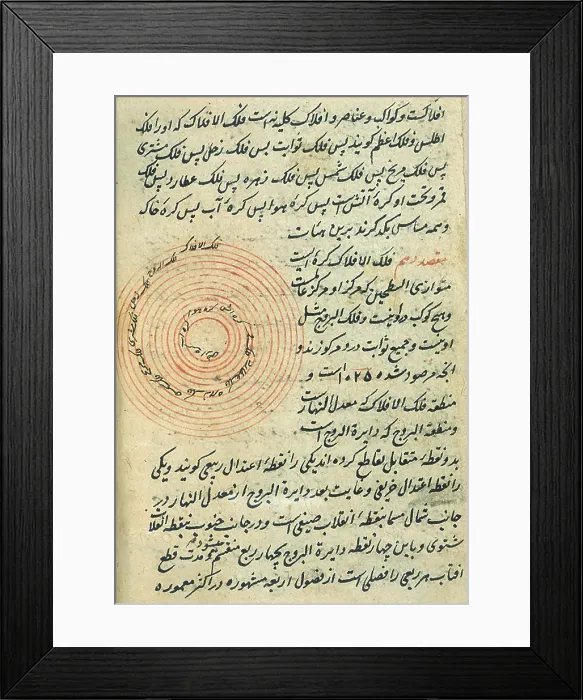 افلاکست و کواکب و عناصر و افلاک کلیه نه است فلک الافلاک که او را فلک
اطلس و فلک اعظم گویند پس فلک ثوابت پس فلک زحل پس فلک مشتری
پس فلک مریخ پس فلک شمس پس فلک زهره پس فلک عطارد پس فلک
قمر و تحت او کرهٔ آتش است پس کرهٔ هوا پس کرهٔ آب پس کرهٔ خاک
و همه مماس یکدیگرند برین هیأت
فلک الافلاک
مقصد دهم فلک الافلاک کره ایست
متوازی السطحین که مرکز او مرکز عالمست
و هیچ کوکب درو نیست و فلک البروج مثل
اوست و جمیع ثوابت درو مرکوزند و
انچه مرصود شده ۱۰۲۵ است و
منطقه فلک الافلاک که معدل النهار است
و منطقة البروج که دایرة البروج است
بدو نقطهٔ متقابل تقاطع کرده اند یکی را نقطهٔ اعتدال ربیعی گویند و یکی
را نقطهٔ اعتدال خریفی و غایت بعد دایرة البروج از معدل النهار در
جانب شمال مسما بنقطهٔ انقلاب صیفی است و در جانب جنوب بنقطه انقلاب
شتوی و باین چهار نقطه دایرة البروج بچهار ربع منقسم میشود و مدت قطع
افتاب هر ربعی را فصلی است از فصول اربعه مشهوره در اکثر معموره